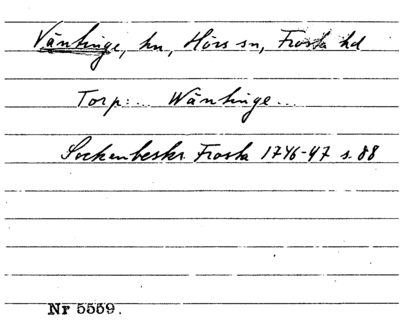 Väntinge, hn, Hörs sn, Frosta hd
Torp: ... Wäntinge ...
Sockenbeskr. Frosta 1746-47 s. 88
Nr 5559.